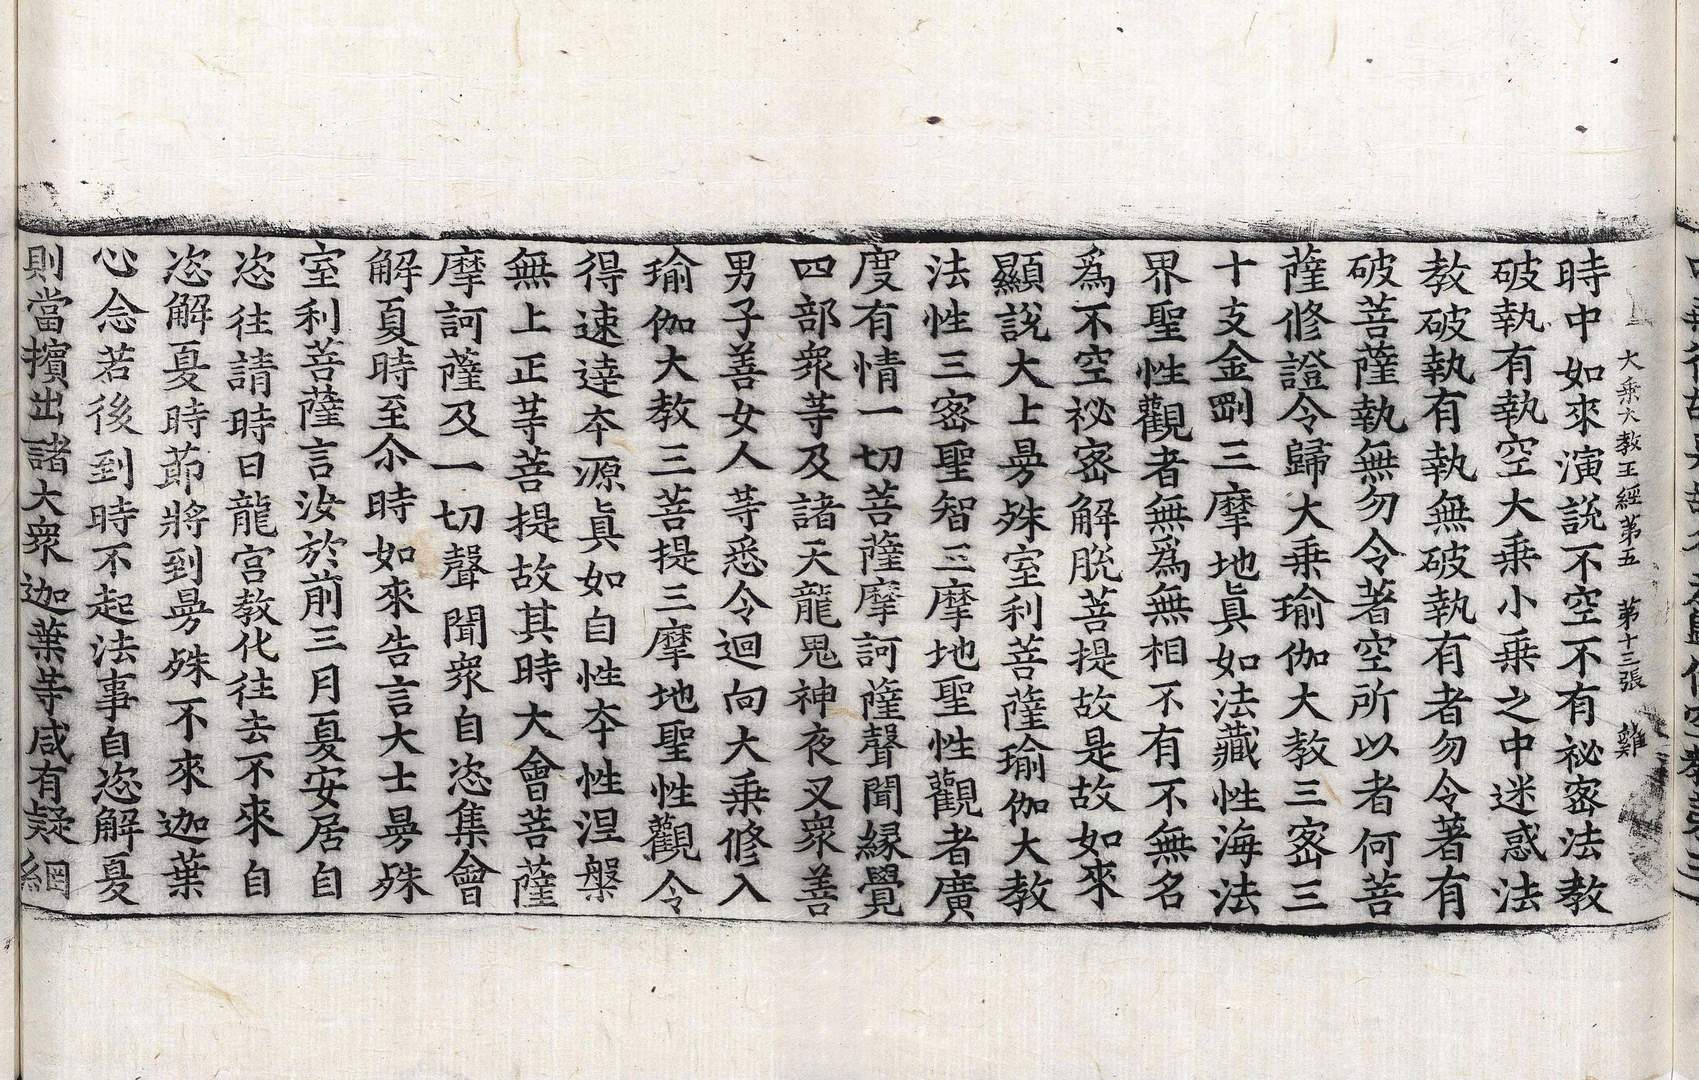 大乘大教王經第五　第十三張　雞
時中如來演說不空不有祕密法教
破執有執空大乘小乘之中迷惑法
教破執有執無破執有者勿令著有
破菩薩執無勿令著空所以者何菩
薩修證令歸大乘瑜伽大教三密三
十支金剛三摩地眞如法藏性海法
界聖性觀者無爲無相不有不無名
爲不空祕密解脫菩提故是故如來
顯說大上曼殊室利菩薩瑜伽大教
法性三密聖智三摩地聖性觀者廣
度有情一切菩薩摩訶薩聲聞縁覺
四部衆等及諸天龍鬼神夜叉衆善
男子善女人等悉令迴向大乘修入
瑜伽大教三菩提三摩地聖性觀令
得速達夲源眞如自性夲性涅槃
無上正等菩提故其時大會菩薩
摩訶薩及一切聲聞衆自恣集會
解夏時至尒時如來告言大士曼殊
室利菩薩言汝於前三月夏安居自
恣往請時日龍宮教化往去不來自
恣解夏時節將到曼殊不來迦葉
心念若後到時不起法事自恣解夏
則當擯出諸大衆迦葉等咸有疑網